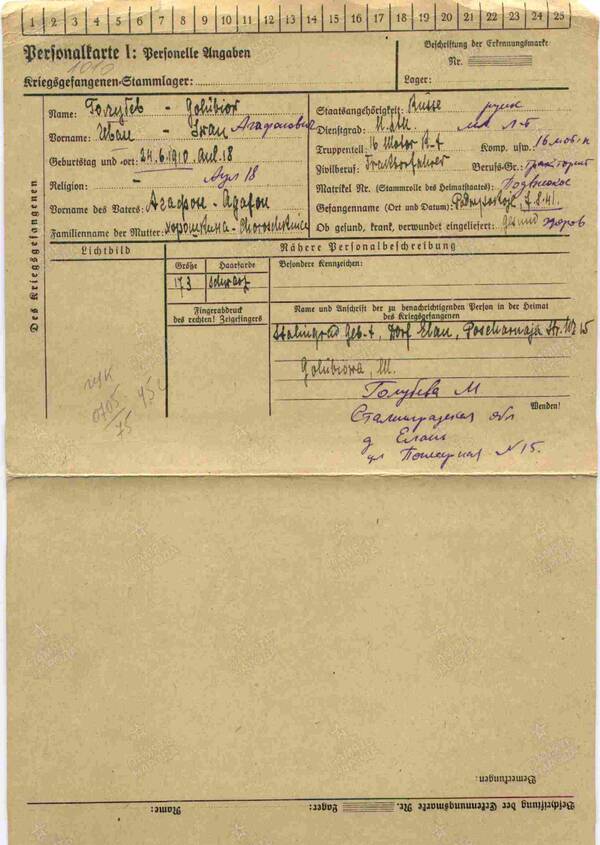 1 2 3 4 5 6 7 8 9 10 11 12 13 14 15 16 17 18 19 20 21 22 23 24 25
Personalkarte I: Personelle Angaben
Kriegsgefangenen-Stammlager:
Beschriftung der Erkennungsmarke
Nr.
Lager:
Des Kriegsgefangenen
Name: Голубев - Golubiow
Vorname: Иван - Iwan Агафонович
Geburtstag und -ort: 24.6.1910. Aul.18
Аул 18
Religion: -
Vorname des Vaters: Агафон - Agafon
Familienname der Mutter:
Staatsangehörigkeit: Russe руск
Dienstgrad:
Truppenteil: 16 Motor Komp. usw.
Zivilberuf: Traktorfahrer Berufs-Gr.: тракторист
Matrikel Nr. (Stammrolle des Heimatstaates): Подвиское
Gefangenname (Ort und Datum): 7.8.41.
Ob gesund, krank, verwundet eingeliefert: gesund здоров
Lichtbild
Nähere Personalbeschreibung
Größe
Haarfarbe
Besondere Kennzeichen:
173
schwarz
Fingerabdruck
des rechten! Zeigefingers
Name und Anschrift der zu benachrichtigenden Person in der Heimat
des Kriegsgefangenen
Stalingrad Geb-t, Dorf Elan, Poscharnaja Str. № 15
Golubiowa, M.
Голубева М
Wenden!
Сталинградская обл
д Елань
ул Пожарная N 15.
Bemerkungen:
Beschriftung der Erkennungsmarke Nr. Lager: Name: